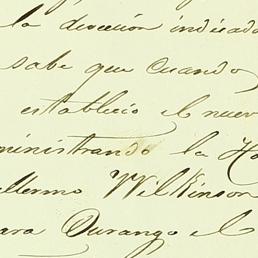 la dirección indicado
sabe que cuando
establecio el nuev
ministrando la Ho
llermo Wilkinson
ara Durango el